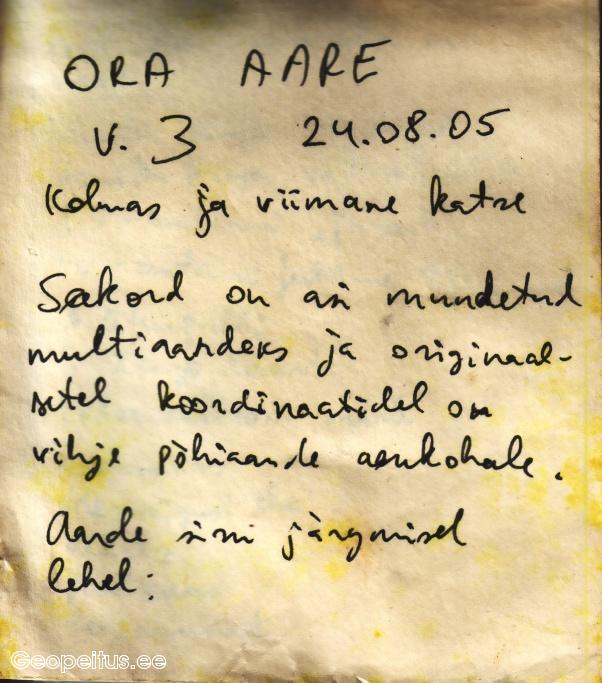 ORA AARE
V. 3 24.08.05
Kolmas ja viimane katse
Seekord on asi muudetud
multiaardeks ja originaal-
setel koordinaatidel on
vihje põhiaarde asukohale.
Aarde sisu järgmisel
lehel:
Geopeitus.ee